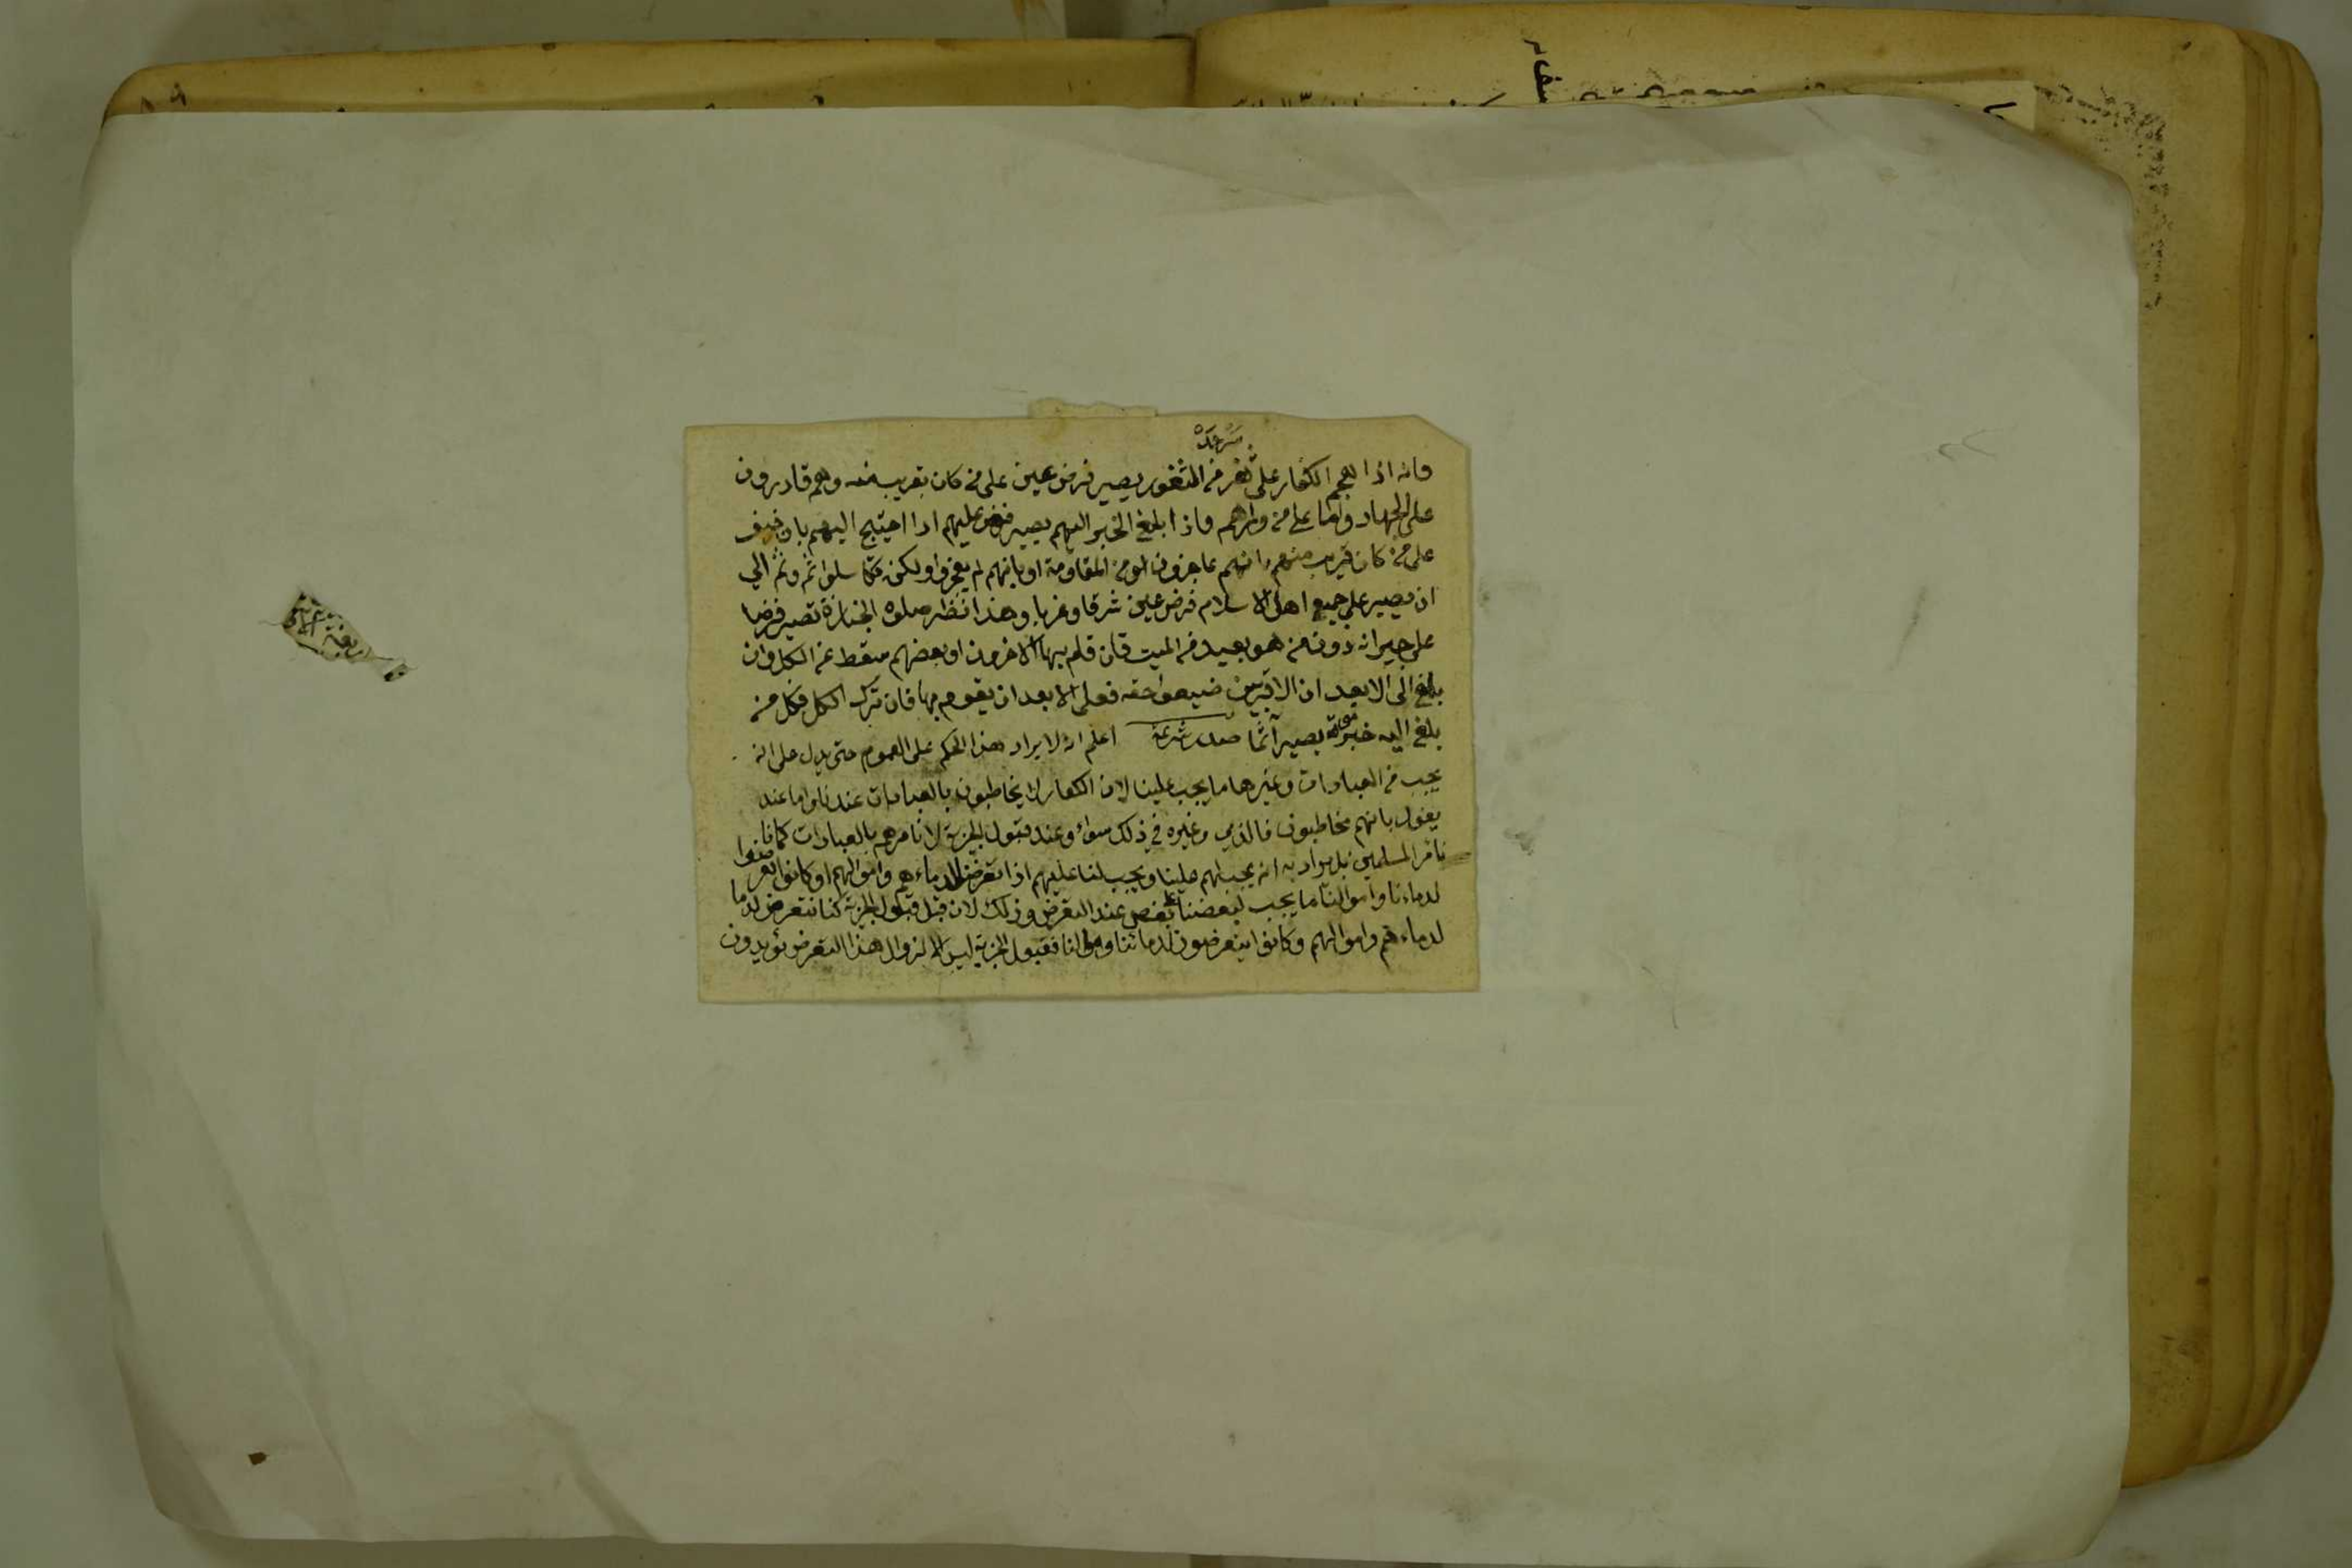 سرحد
فانه اذا هجم الكفار على ثغر من الثغور يصير فرض عين على من كان بقرب منه وهم قادرون
على الجهاد واما على من وراهم فاذا بلغ الخبر اليهم يصير فرض عليهم اذا احتيج اليهم بان خيف
على من كان قريب منهم بانهم عاجزون من المقاومة او بانهم لم يعجزوا ولكن تكاسلوا ثم وثم الى
ان يصير على جميع اهل الاسلام فرض عين شرقا وغربا وهذا نظر صلوة الجنازة تصير فرضا
على جيرانه دون من هو بعيد من الميت فان قام بها الاخرون او بعضهم سقط عن الكل وان
بلغ الى الابعد ان الاقربين ضيعوا حقه فعلى الابعد ان يقوم بها فان ترك الكل فكل من
بلغ اليه خبر موته يصير آثما صدر شريعة اعلم انه لا يراد هذا الحكم على العموم حتى يدل على انه
يجب من العبادات وغيرها ما يجب علينا لان الكفار لا يخاطبون بالعبادات عندنا واما عند
يقول بانهم مخاطبون فالذمي وغيره في ذلك سواء وعند قبول الجزية لا نامرهم بالعبادات كما
نامر المسلمين بل يراد به انه يجب لهم علينا ويجب لنا عليهم اذا تعرضنا لدماءهم واموالهم او كانوا تعرضوا
لدماءنا واموالنا ما يجب لبعضنا على بعض عند التعرض وذلك لان قبل قبول الجزية كنا نتعرض لدما
لدماءهم واموالهم وكانوا يتعرضون لدمائنا واموالنا فقبول الجزية ليس الا لزوال هذا التعرض